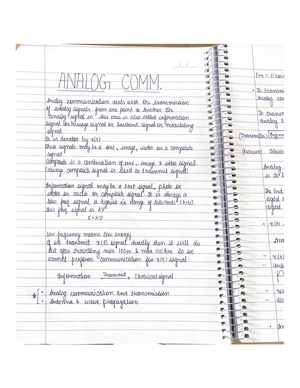 ANALOG COMM.
Analog communication deals with the transmission
of analog signals from one point to another. The
"analog" signal in this case is also called information
signal or message signal or baseband signal or modulating
signal.
It is denoted by x(t)
This signals may be a text, image, video or a complete
signal.
Composite is a combination of text, image & video signal.
Information signal may be a text signal, photo or
video or audio or complete signal. It is always a
low frq signal & highest in range of kilohertz (KHz)
low frq signal is
Low frequency means low energy
If we transmit x(t) signal directly then it will die
out after travelling min 100 m & max 200 km. So we
cannot perform communication for x(t) signal.
Information Transmit Electrical signal
* Analog communication and transmission
Antenna & wave propagation
Em =
To transm
Analog co
To transm
analog
(Transmitter)
(Receiver)
Analog
is to
The
digital
digital
x(t)